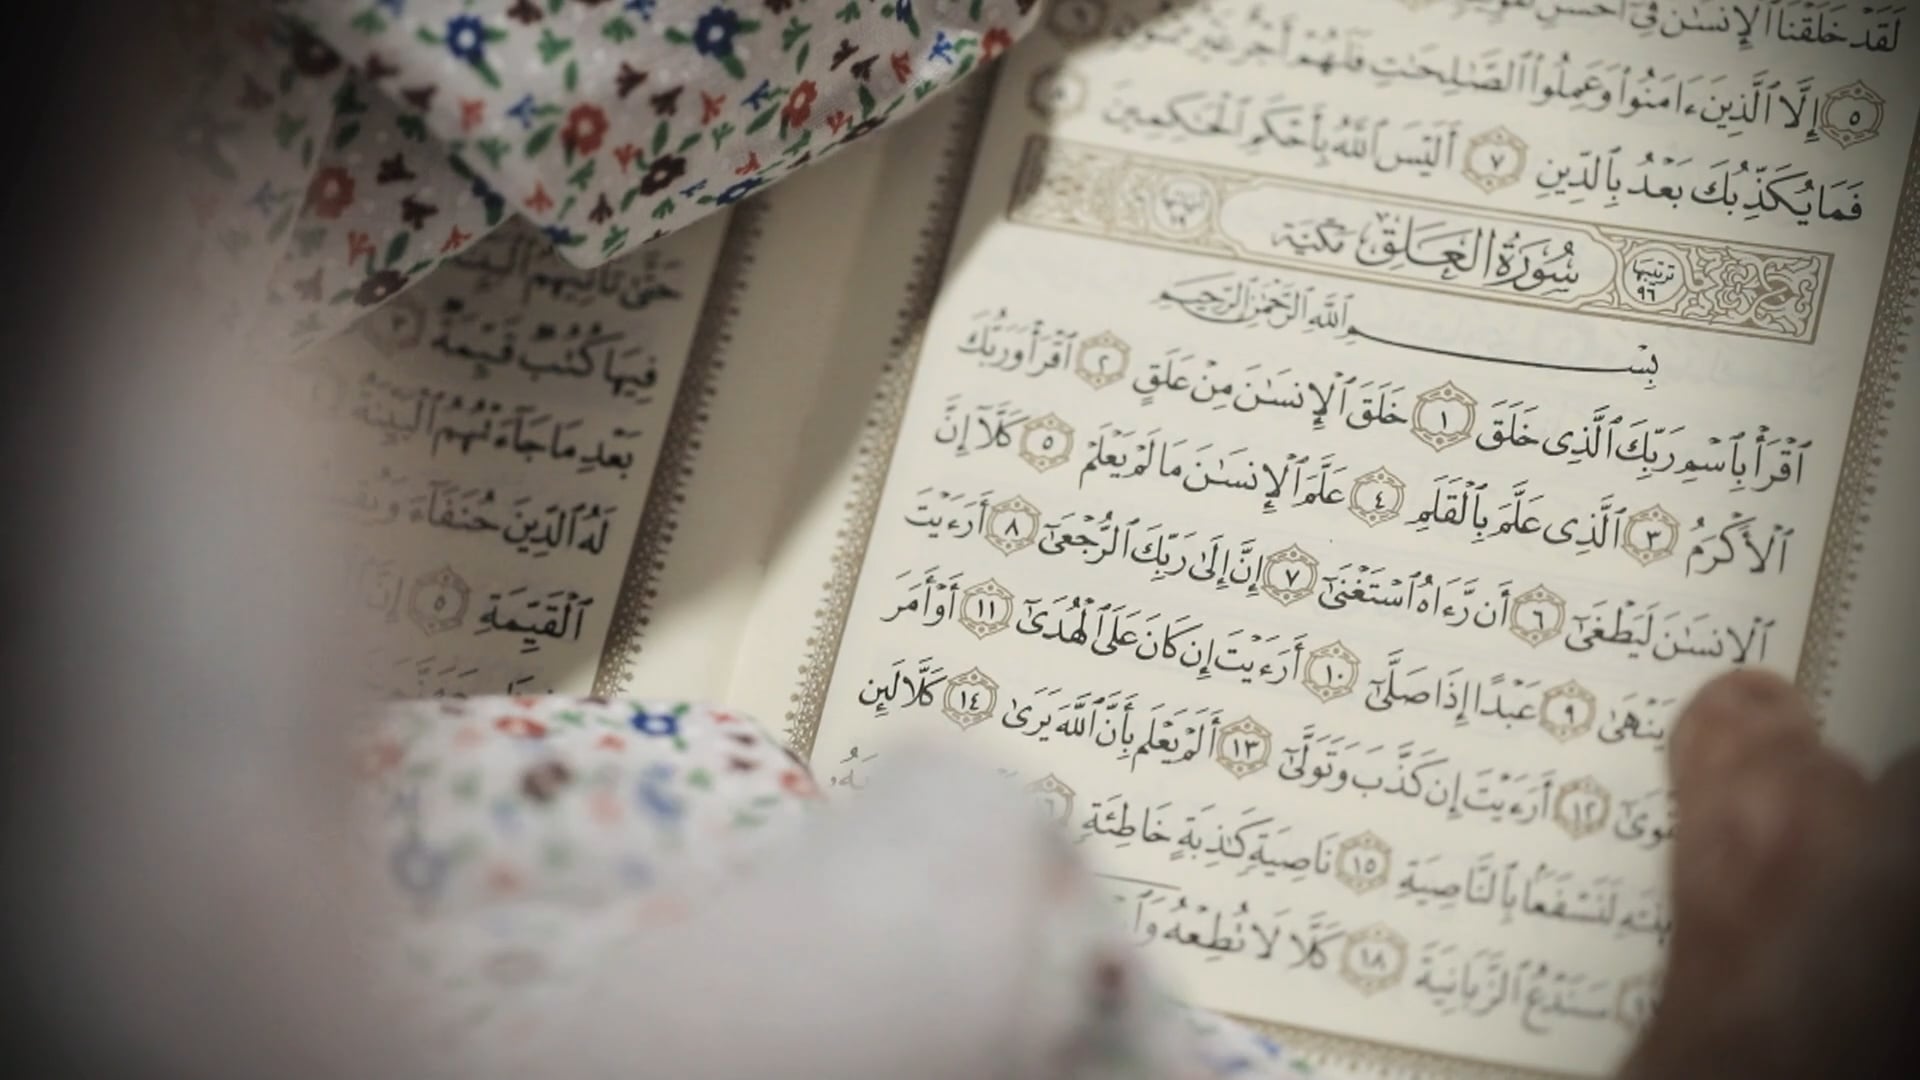 لَقَدْ خَلَقْنَا ٱلْإِنسَٰنَ فِىٓ أَحْسَنِ
٥ إِلَّا ٱلَّذِينَ ءَامَنُوا۟ وَعَمِلُوا۟ ٱلصَّٰلِحَٰتِ فَلَهُمْ أَجْرٌ غَيْرُ
فَمَا يُكَذِّبُكَ بَعْدُ بِٱلدِّينِ ٧ أَلَيْسَ ٱللَّهُ بِأَحْكَمِ ٱلْحَٰكِمِينَ ٨
ترتيبها ٩٦ سُورَةُ الْعَلَقِ مَكيّة آياتها ١٩
بِسْمِ ٱللَّهِ ٱلرَّحْمَٰنِ ٱلرَّحِيمِ
ٱقْرَأْ بِٱسْمِ رَبِّكَ ٱلَّذِى خَلَقَ ١ خَلَقَ ٱلْإِنسَٰنَ مِنْ عَلَقٍ ٢ ٱقْرَأْ وَرَبُّكَ
ٱلْأَكْرَمُ ٣ ٱلَّذِى عَلَّمَ بِٱلْقَلَمِ ٤ عَلَّمَ ٱلْإِنسَٰنَ مَا لَمْ يَعْلَمْ ٥ كَلَّآ إِنَّ
ٱلْإِنسَٰنَ لَيَطْغَىٰٓ ٦ أَن رَّءَاهُ ٱسْتَغْنَىٰٓ ٧ إِنَّ إِلَىٰ رَبِّكَ ٱلرُّجْعَىٰٓ ٨ أَرَءَيْتَ
يَنْهَىٰ ٩ عَبْدًا إِذَا صَلَّىٰٓ ١٠ أَرَءَيْتَ إِن كَانَ عَلَى ٱلْهُدَىٰٓ ١١ أَوْ أَمَرَ
قْوَىٰٓ ١٢ أَرَءَيْتَ إِن كَذَّبَ وَتَوَلَّىٰٓ ١٣ أَلَمْ يَعْلَم بِأَنَّ ٱللَّهَ يَرَىٰ ١٤ كَلَّا لَئِن
لَنَسْفَعًۢا بِٱلنَّاصِيَةِ ١٥ نَاصِيَةٍ كَٰذِبَةٍ خَاطِئَةٍ
سَنَدْعُ ٱلزَّبَانِيَةَ ١٨ كَلَّا لَا تُطِعْهُ
حَتَّىٰ تَأْتِيَهُمُ
فِيهَا كُتُبٌ قَيِّمَةٌ ٣
بَعْدِ مَا جَآءَتْهُمُ ٱلْبَيِّنَةُ
لَهُ ٱلدِّينَ حُنَفَآءَ
ٱلْقَيِّمَةِ ٥